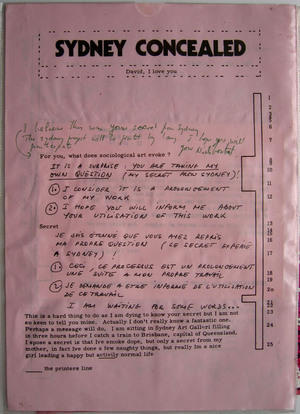 SYDNEY CONCEALED
David, I love you
1
2
3
4
5
6
I believe this was your secret from Sydney
The Sydney project will be printed by I hope you will
participate
For you, what does sociological art evoke ?
IT IS A SURPRISE : YOU ARE TAKING MY
OWN QUESTION (MY SECRET FROM SYDNEY)!
1) I CONSIDER IT IS A PROLONGEMENT
OF MY WORK
2) I HOPE YOU WILL INFORM ME ABOUT
YOUR UTILISATION OF THIS WORK
Secret
JE SUIS ÉTONNÉ QUE VOUS AYEZ REPRIS
MA PROPRE QUESTION (CE SECRET EXPÉDIÉ
A SYDNEY) !
1) CECI, CE PROCESSUS EST UN PROLONGEMENT
UNE SUITE A MON PROPRE TRAVAIL
2) JE DEMANDE A ETRE INFORMÉ DE L'UTILISATION
DE CE TRAVAIL
I AM WAITING FOR SOME WORDS...
This is a hard thing to do as I am dying to know your secret but I am not
so keen to tell you mine. Actually I don't really know a fantastic one.
Perhaps a message will do, I am sitting in Sydney Art Gall-eri filling
in three hours before I catch a train to Brisbane, capital of Queensland.
I spose a secret is that Ive smoke dope, but only a secret from my
mother, in fact Ive done a few naughty things, but really Im a nice
girl leading a happy but actively normal life
25
the printers line